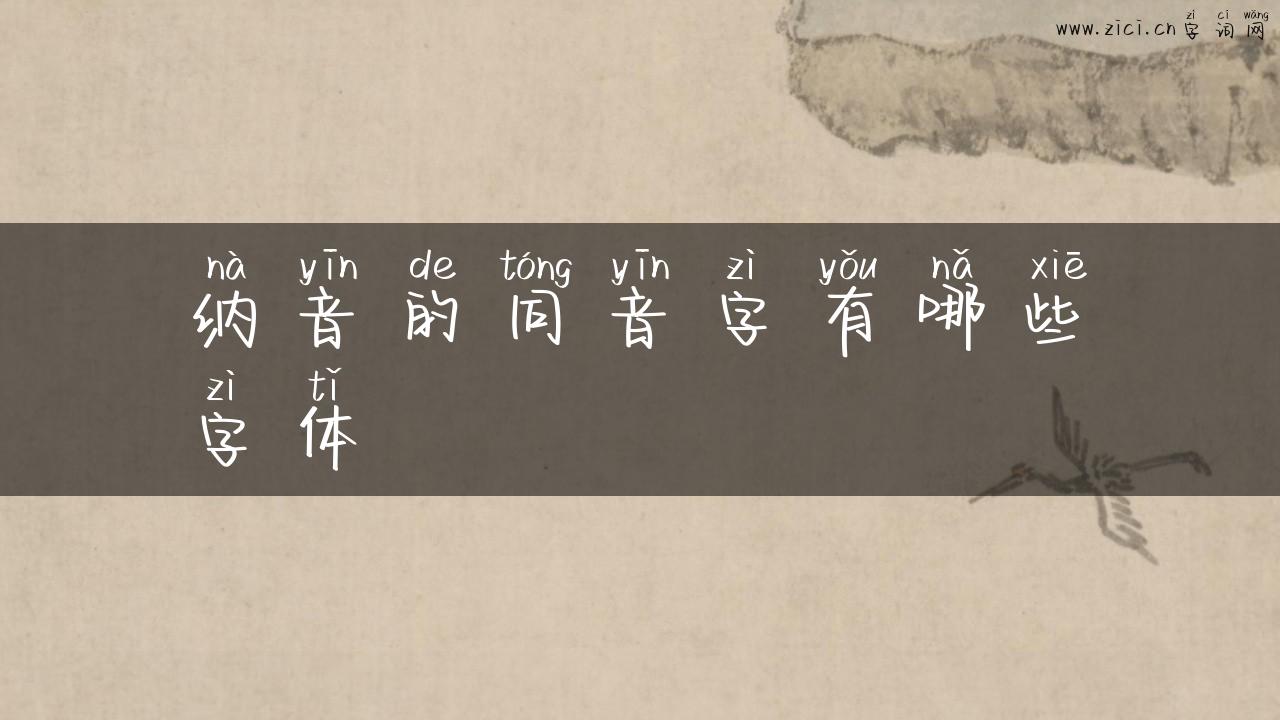 zì cí wǎng
www.zici.cn字词网
nà yīn de tóng yīn zì yǒu nǎ xiē
纳音的同音字有哪些
zì tǐ
字体